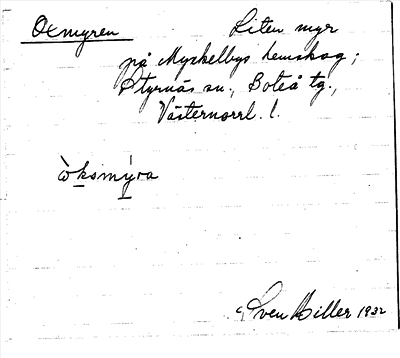 Oxmyren Liten myr
på Myckelbys hemskog;
Styrnäs sn., Boteå tg.,
Västernorrl. l.
ò̀ksmýra
Sven Hiller 1932